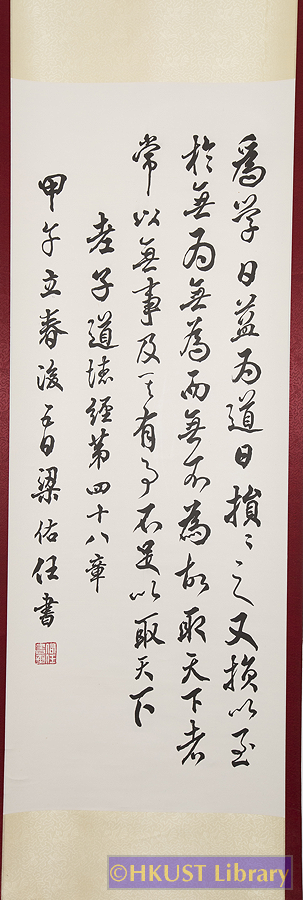 為学日益為道日損損之又損以至
於無為無為而無不為故取天下者
常以無事及其有事不足以取天下
老子道德經第四十八章
甲午立春後五日梁佑任書
©HKUST Library